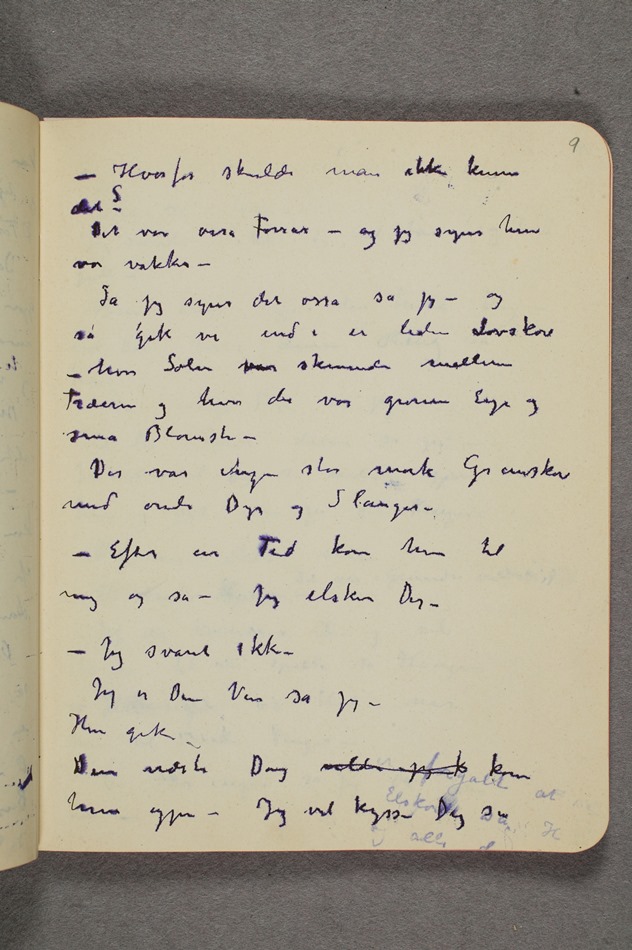 9
— Hvorfor skulde man ikke kunne
det?
Det var ossa Foraar — og jeg synes hun
var vakker —
Ja jeg synes det ossa sa jeg — og
så gik vi ind i en liden Lovskov
— hvor Solen var skinnende mellem
Træerne og hvor der var grønne Enge og
sma Blomster —
Der var ingen stor mørk Granskov
med onde Dyr og Slanger —
— Efter en Tid kom hun til
mig og sa — Jeg elsker Dig —
— Jeg svared ikke —
Jeg er Din Ven sa jeg —
Hun gik —
Den næste Dag kom
hun igjen — Jeg vil kysse Dig sa